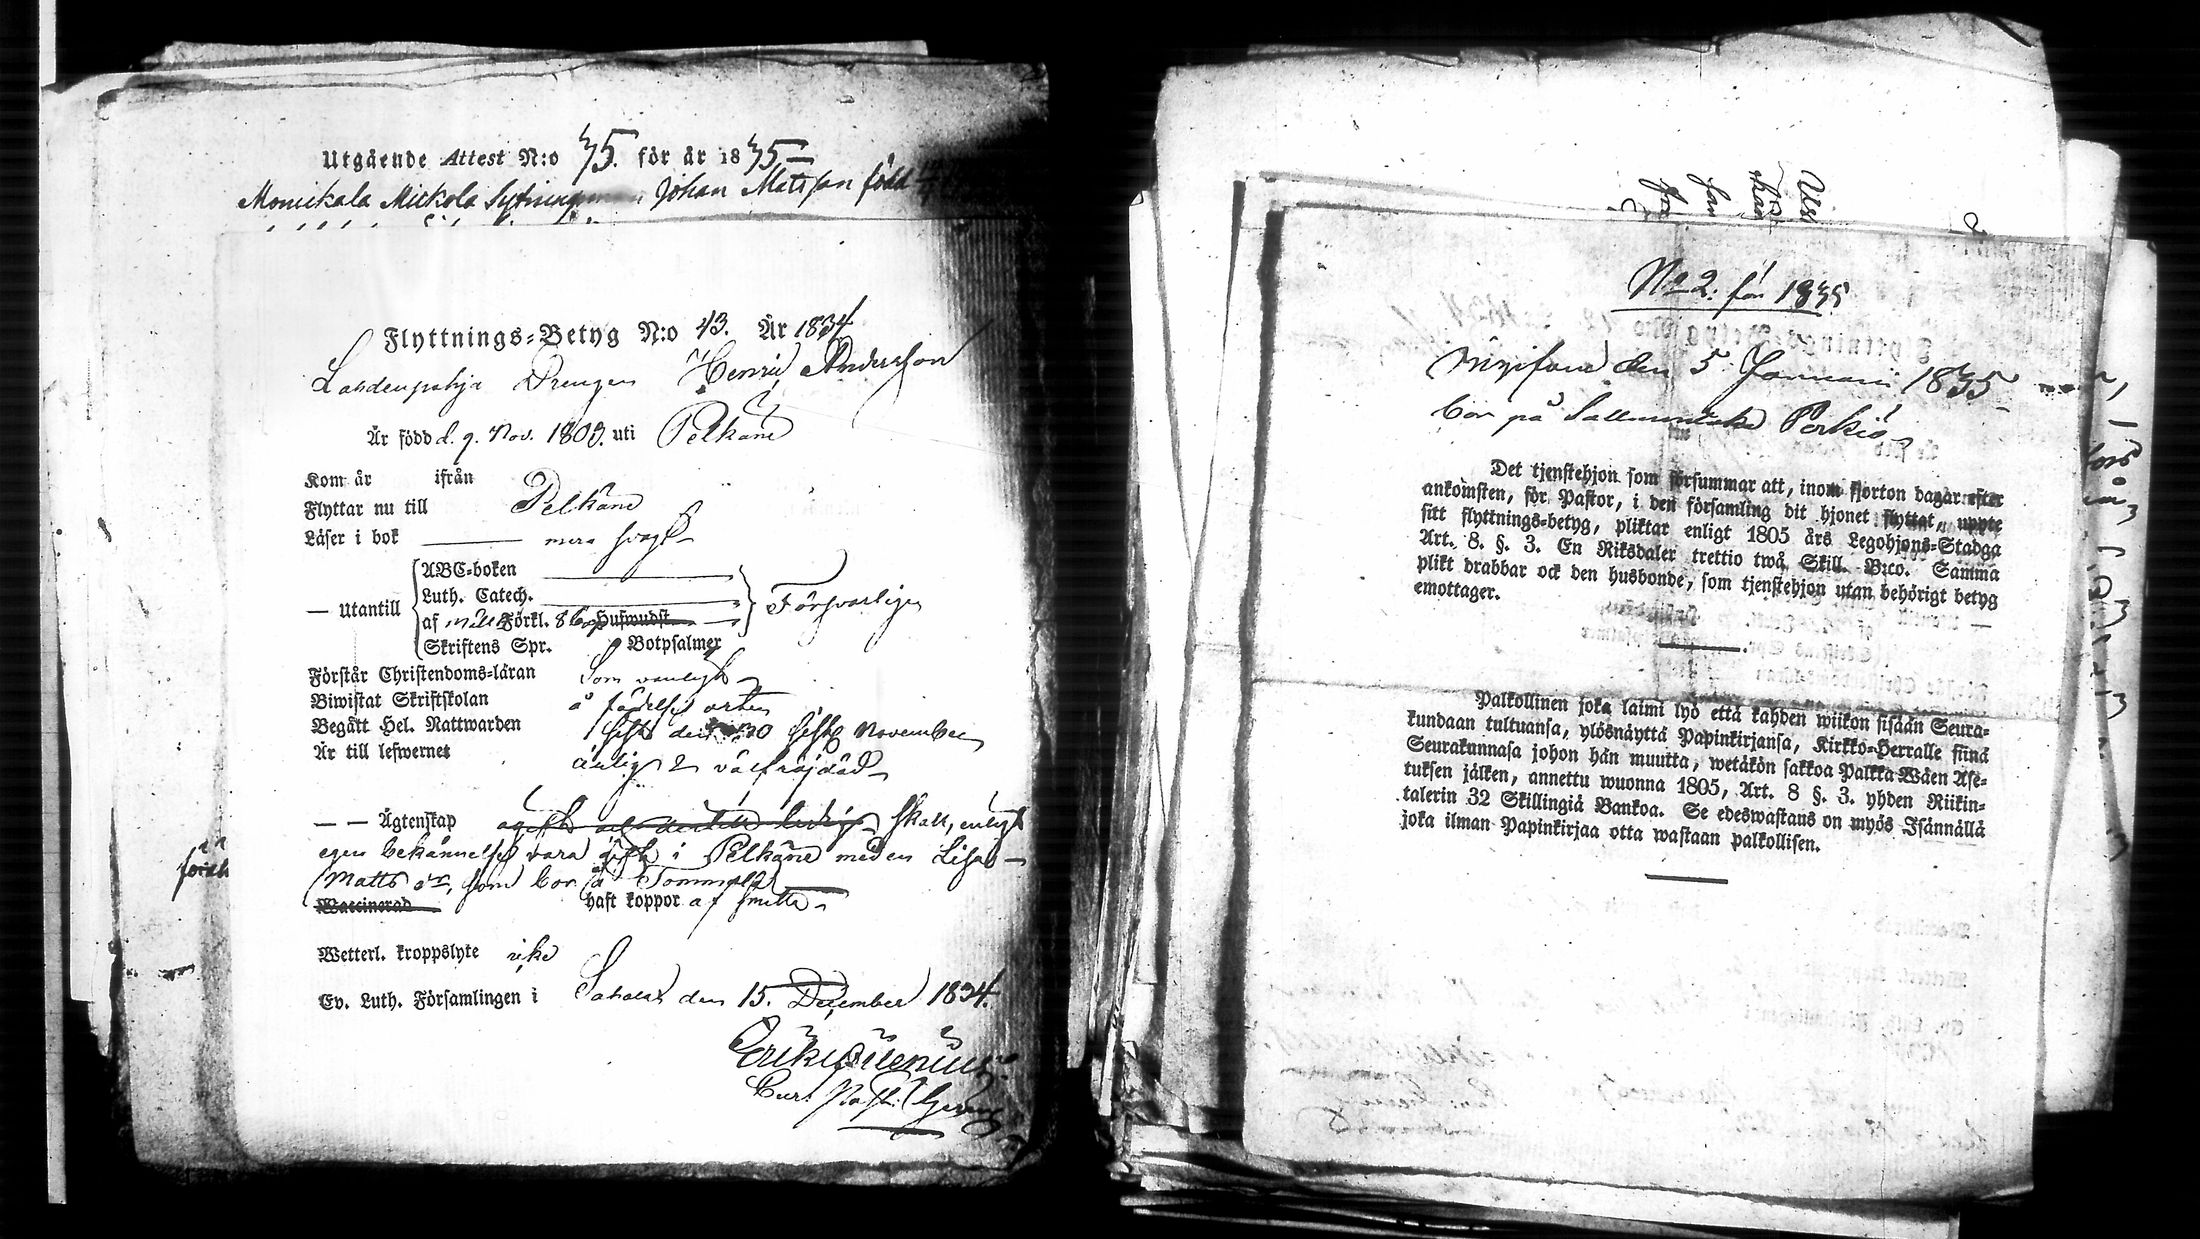 Utgående Attest N:o 75. för år 1835
Monickala Mickola Johan Mattsson född
Flyttnings-Betyg N:o 43. År 1834
Lahdenpohja Drengen Henric Andersson
Är född d. 9. Nov. 1803. uti Pelkäne
Kom år ifrån
Flyttar nu till Pelkäne
Läser i bok mera svagt
— Utantill
ABC-boken
Luth. Catech.
af Förkl. Huswudst.
Skriftens Spr. Botpsalmer
Försvarligen
Förstår Christendoms-läran Som vanligt
Biwistat Skriftskolan å födelse orten
Begått Hel. Nattwarden sist den 30 sistl. November
Är till lefwernet
— — Ägtenskap skall, enligt
egen bekännelse vara gift i Pelkäne med en Lisa
Matts dr, som bor å Tommola
Waccinerad haft koppor af smitta
Wetterl. kroppslyte icke
Ev. Luth. Församlingen i Sahalax den 15. December 1834.
No 2. för 1835
den 5. Januarii 1835
bor på Perkiö
Det tjenstehjon som försummar att, inom fjorton dagar efter
ankomsten, för Pastor, i den församling dit hjonet flyttat, uppte
sitt flyttnings-betyg, pliktar enligt 1805 års Legohjons-Stadga
Art. 8. §. 3. En Riksdaler trettio twå Skill. B:co. Samma
plikt drabbar ock den husbonde, som tjenstehjon utan behörigt betyg
emottager.
Palkollinen joka laimi lyö että kahden wiikon sisään Seura-
kundaan tultuansa, ylösnäyttä Papinkirjansa, Kirkko-Herralle siinä
Seurakunnasa johon hän muutta, wetäkön sakkoa Palkka-Wäen Ase-
tuksen jälken, annettu wuonna 1805, Art. 8 §. 3. yhden Riikin-
talerin 32 Skillingiä Bankoa. Se edeswastaus on myös Isännällä
joka ilman Papinkirjaa otta wastaan palkollisen.